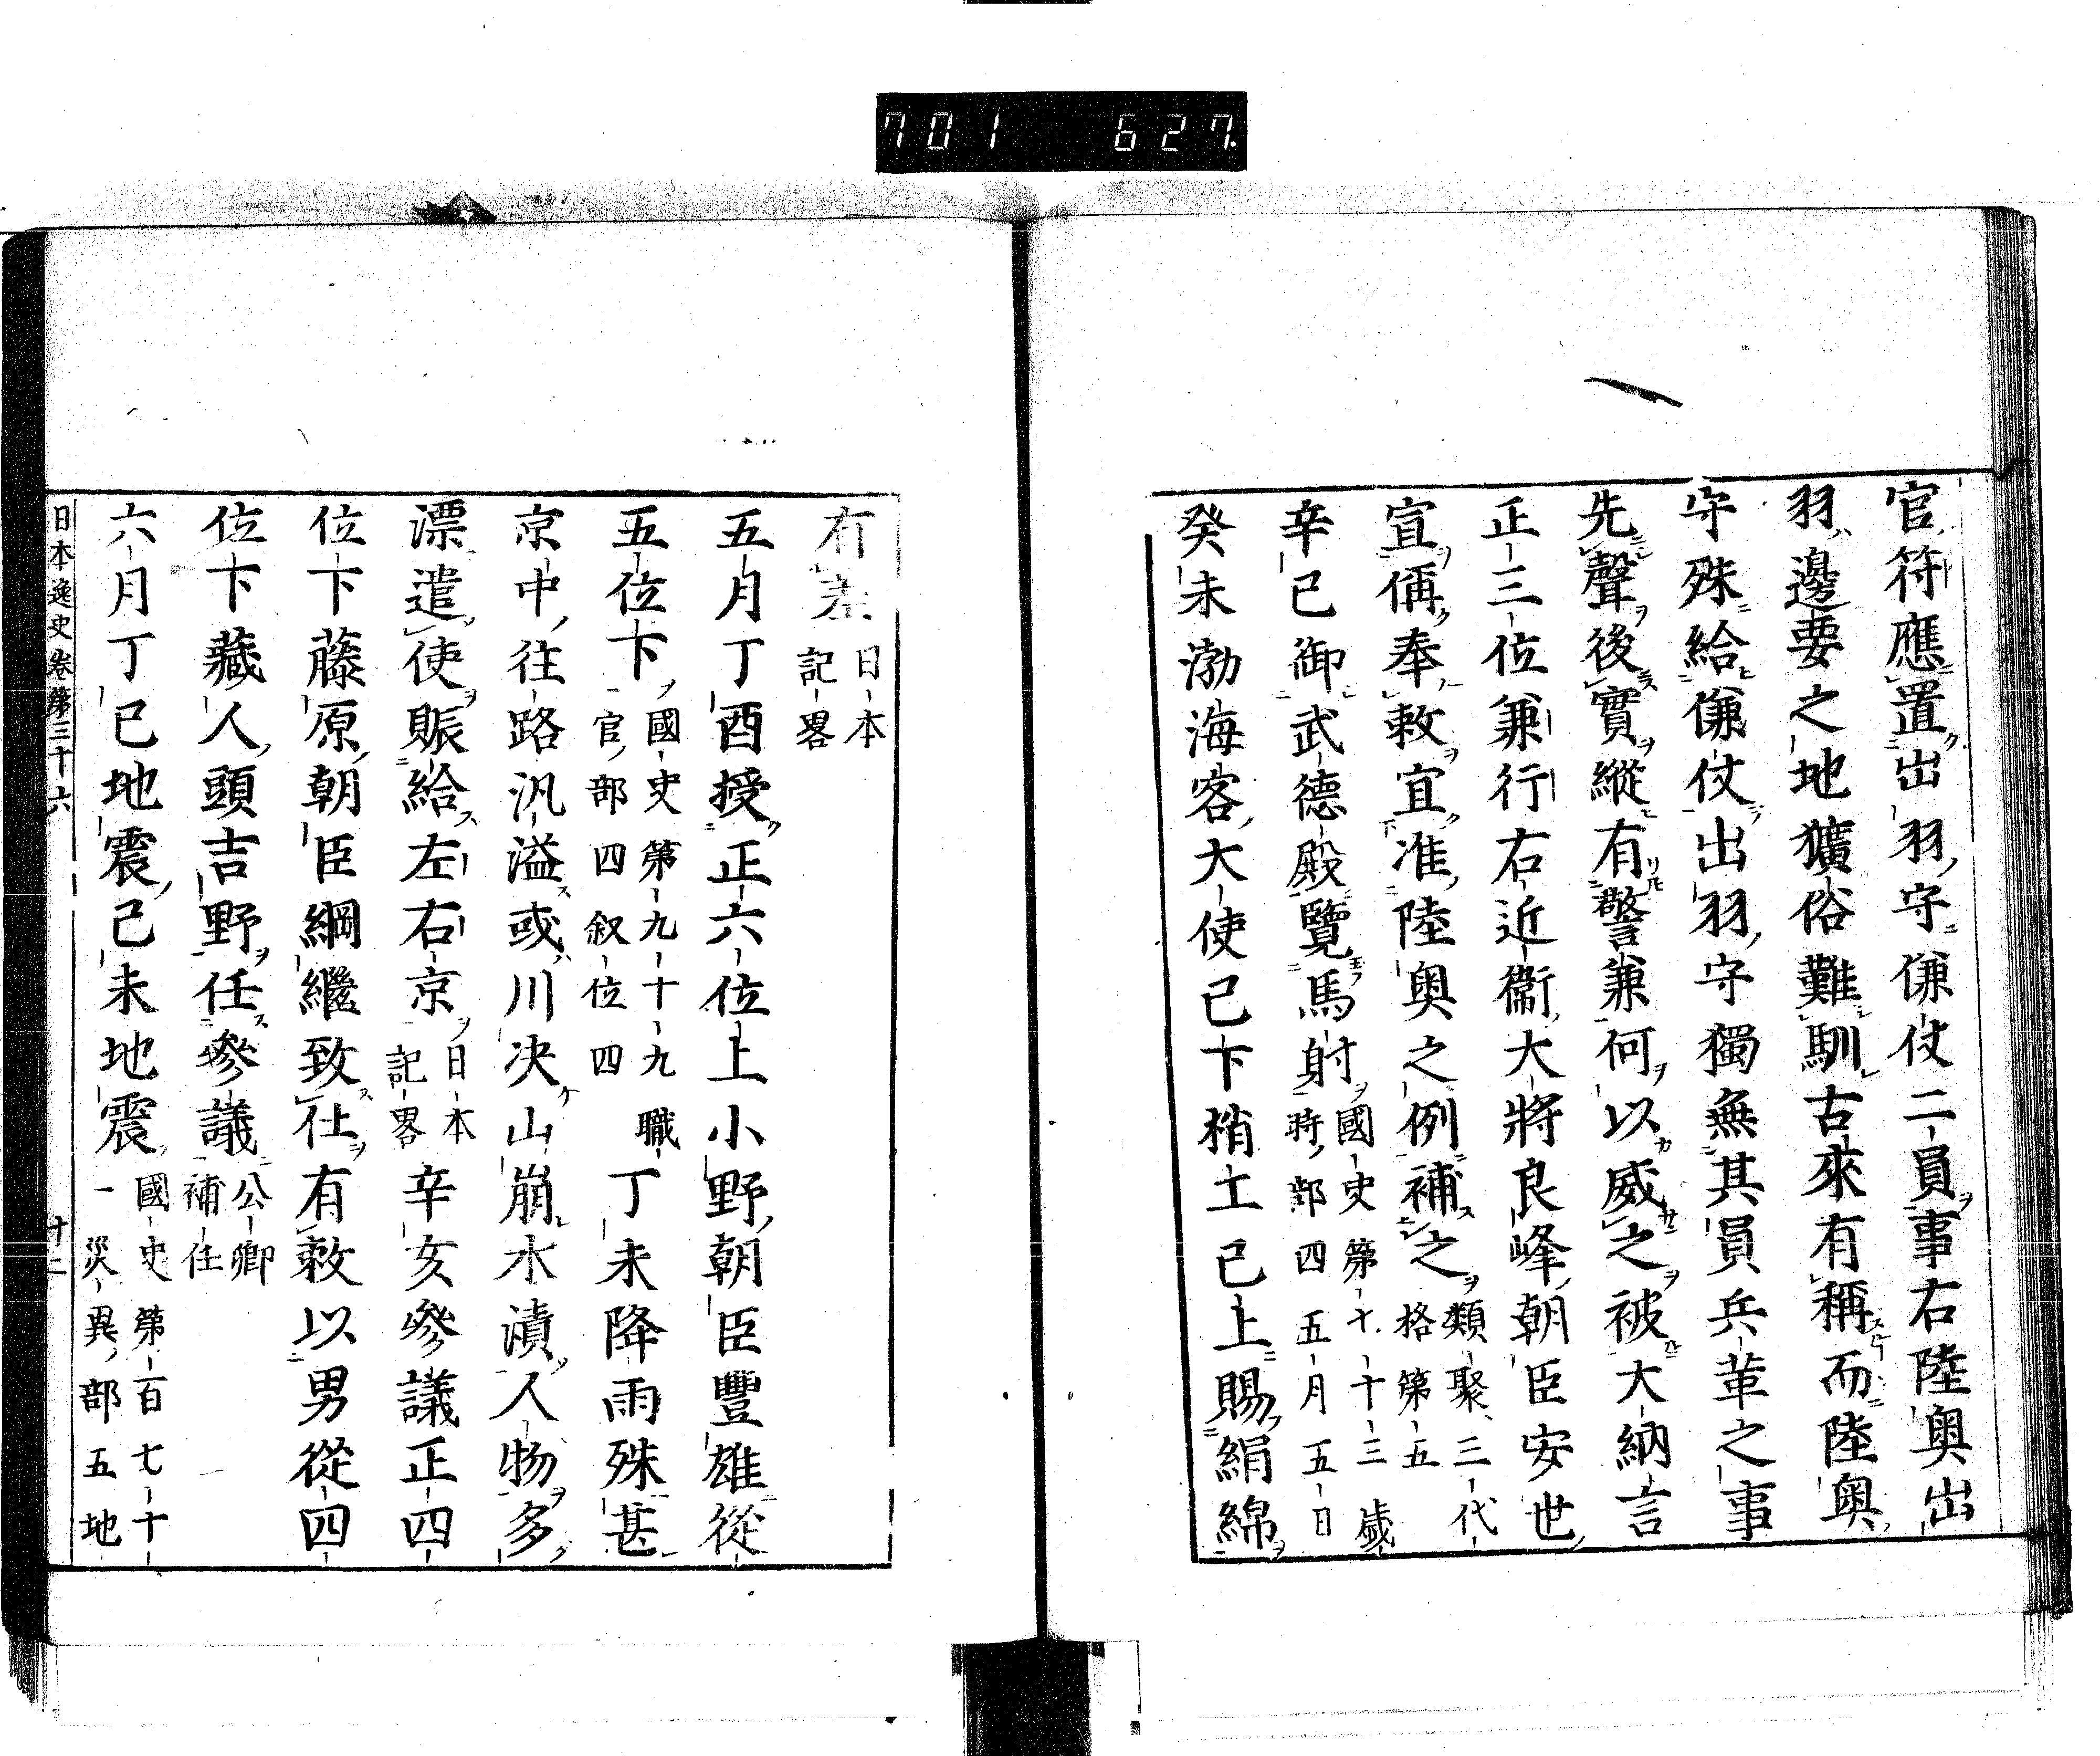 701 627
官符應置出羽守傔仗二員事右陸奥出
羽邊要之地獷俗難馴古來有稱而陸奥
守殊給傔仗出羽守獨無其員兵革之事
先聲後實縱有警兼何以威之被大納言
正三位兼行右近衞大將良峰朝臣安世
宣偁奉敕宜准陸奥之例補之類聚三代
格第五
辛已御武德殿覽馬射國史第七十三歲
時部四五月五日
癸未渤海客大使已下梢工已上賜絹綿
有差日本
記畧
五月丁酉授正六位上小野朝臣豐雄從
五位下國史第九十九職
官部四叙位四
丁未降雨殊甚
京中往路汎溢或川决山崩水漬人物多
漂遣使賑給左右京日本
記畧
辛亥參議正四
位下藤原朝臣綱繼致仕有敕以男從四
位下藏人頭吉野任參議公卿
補任
六月丁已地震己未地震國史第百七十
一災異部五地
日本逸史卷第三十六
十二